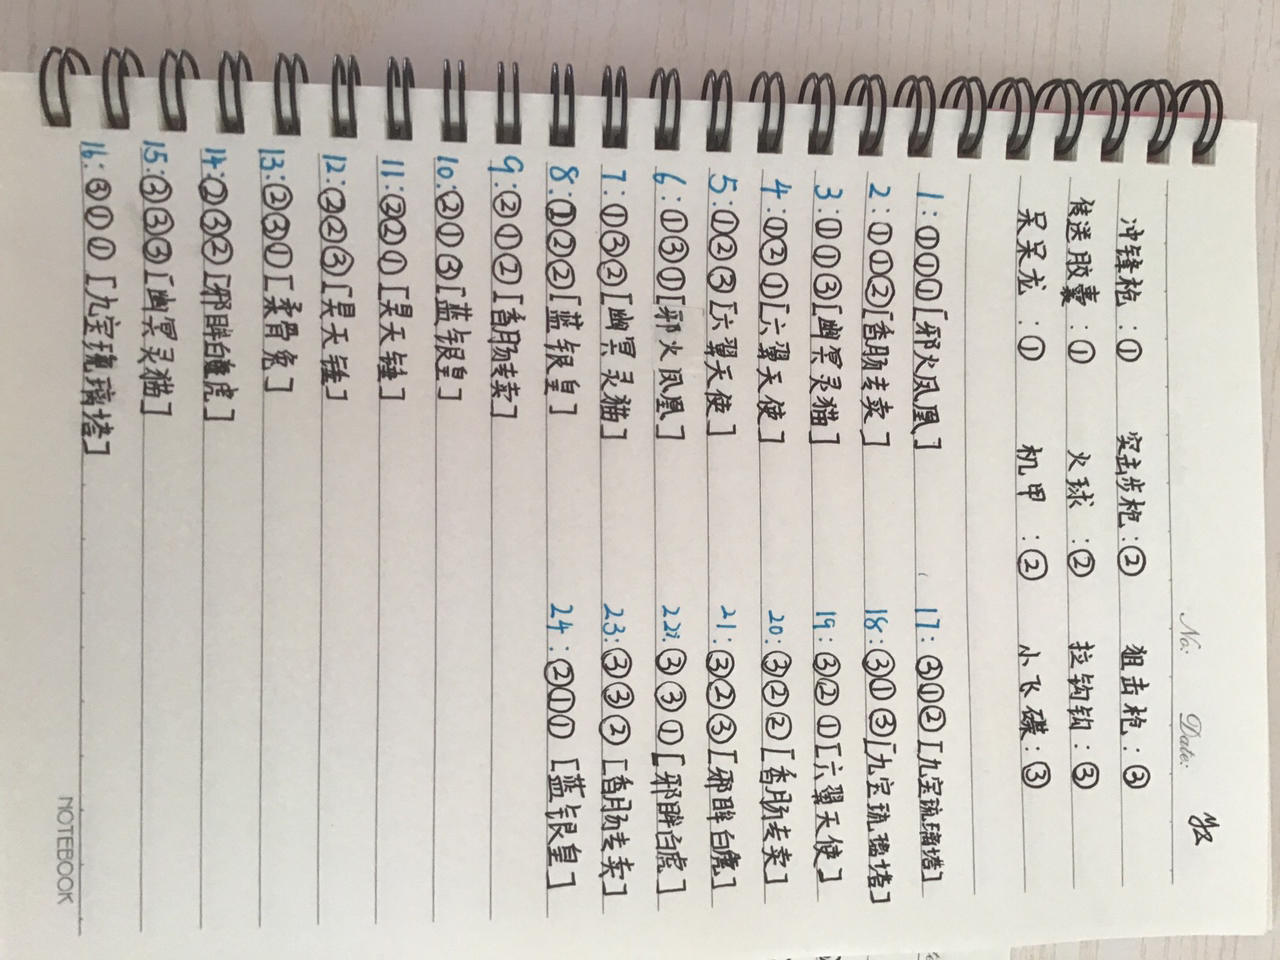 No:
Date:
冲锋枪:① 突击步枪:② 狙击枪:③
传送胶囊:① 火球:② 拉钩钩:③
呆呆龙:① 机甲:② 小飞碟:③
1:①①①[邪火凤凰]
2:①①②[香肠专卖]
3:①①③[幽冥灵猫]
4:①②①[六翼天使]
5:①②③[六翼天使]
6:①③①[邪火凤凰]
7:①③②[幽冥灵猫]
8:②②②[蓝银皇]
9:②①②[香肠专卖]
10:②①③[蓝银皇]
11:②②①[昊天锤]
12:②②③[昊天锤]
13:②③①[柔骨兔]
14:②③②[邪眸白虎]
15:③③③[幽冥灵猫]
16:③①①[九宝琉璃塔]
17:③①②[九宝琉璃塔]
18:③①③[九宝琉璃塔]
19:③②①[六翼天使]
20:③②②[香肠专卖]
21:③②③[邪眸白虎]
22:③③①[邪眸白虎]
23:③③②[香肠专卖]
24:②①①[蓝银皇]
NOTEBOOK